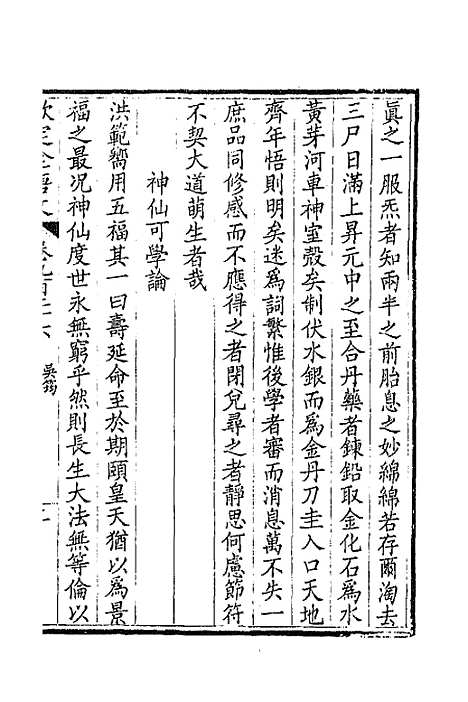 眞之一服炁者知兩半之前胎息之妙綿綿若存爾淘去
三尸日滿上昇元中之至合丹藥者鍊鉛取金化石爲水
黃芽河車神室殻矣制伏水銀而爲金丹刀圭入口天地
齊年悟則明矣迷爲詞繁惟後學者審而消息萬不失一
庶品同修感而不應得之者閉兌尋之者靜思何慮節符
不契大道萌生者哉
神仙可學論
洪範嚮用五福其一曰壽延命至於期頤皇天猶以爲景
福之最况神仙度世永無窮乎然則長生大法無等倫以
欽定全唐文
卷九百二十六
吳筠